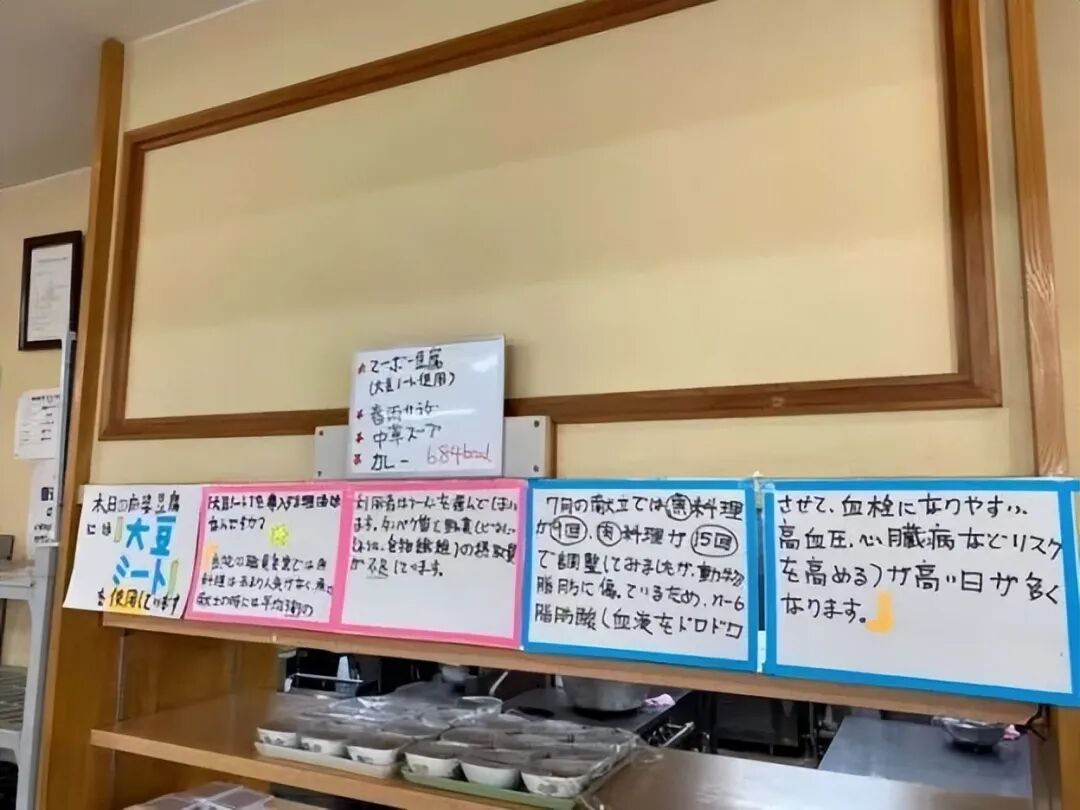 マーボー豆腐
(大豆ミート使用)
春雨サラダ
中華スープ
カレー 684kcal
本日の麻婆豆腐
には
大豆
ミート
を使用しています
大豆ミートを導入する理由は
なんですか?
当院の職員食堂では魚
料理はあまり人気がなく、魚の
献立の時には平均3割の
利用者はラーメンを選んでしまい
ます。タンパク質と野菜(ビタミン
ミネラル、食物繊維)の摂取量
が不足しています。
7月の献立では魚料理
が9回、肉料理が15回
で調整してみましたが、動物
脂肪に偏っているため、n-6
脂肪酸(血液をドロドロ
させて、血栓になりやすい、
高血圧、心臓病などリスク
を高める)が高い日が多く
なります。